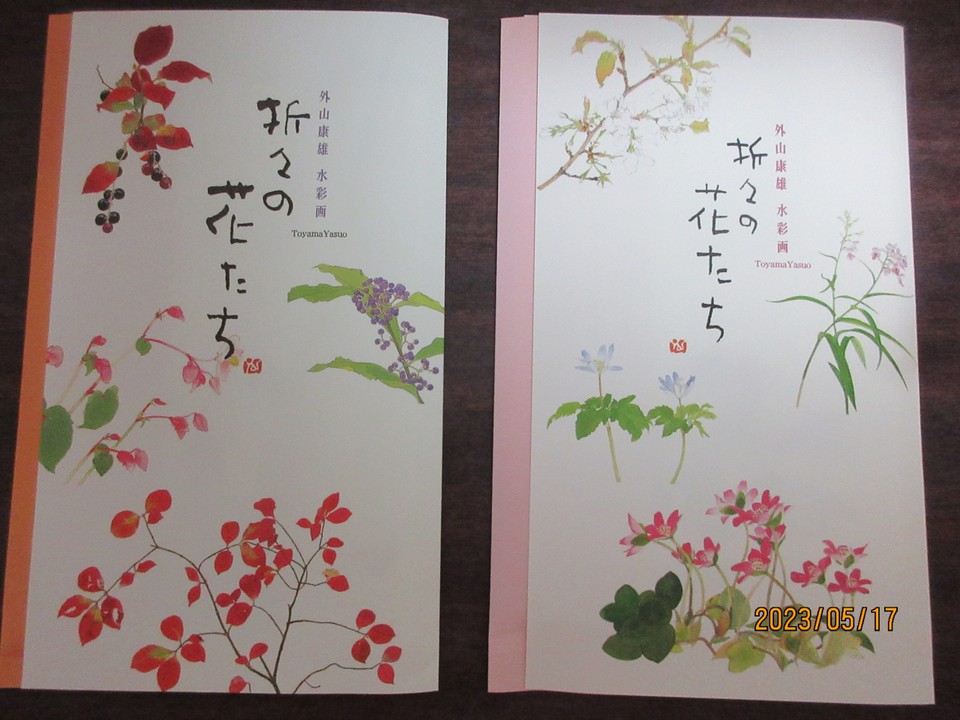 外山康雄 水彩画
ToyamaYasuo
折々の
花たち
外山康雄 水彩画
ToyamaYasuo
折々の
花たち
2023/05/17